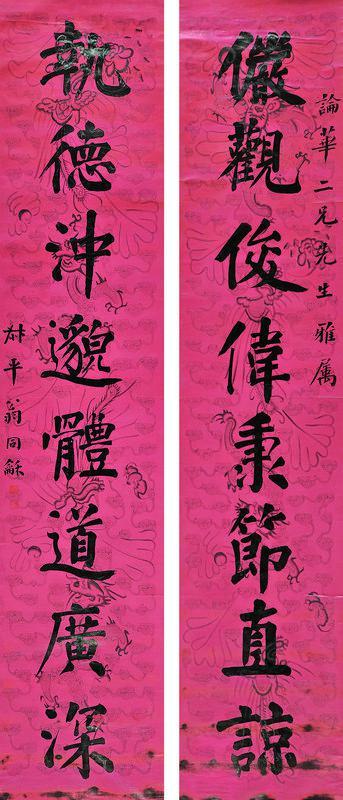 論華二兄先生雅属
儼觀俊偉秉節直諒
執德沖邈體道廣深
叔平翁同龢